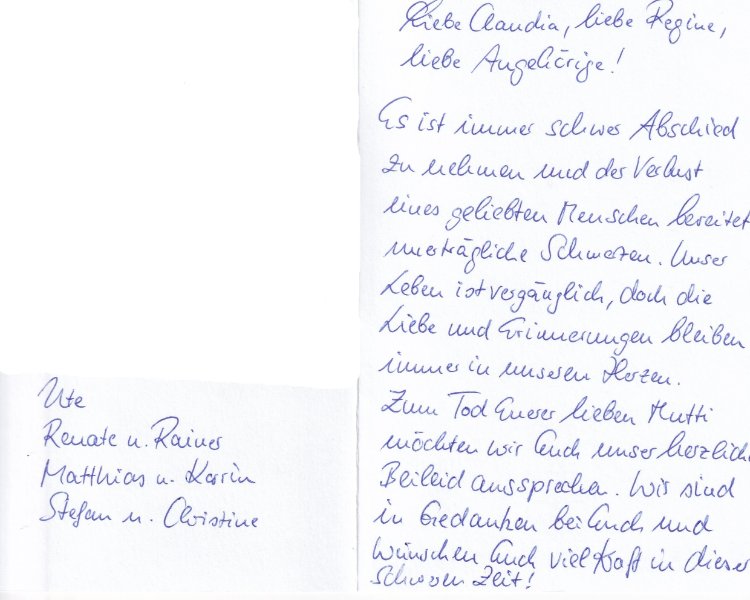 Liebe Claudia, liebe Regine,
liebe Angehörige!
Es ist immer schwer Abschied
zu nehmen und der Verlust
eines geliebten Menschen bereitet
unerträgliche Schmerzen. Unser
Leben ist vergänglich, doch die
Liebe und Erinnerungen bleiben
immer in unseren Herzen.
Zum Tod Eurer lieben Mutti
möchten wir Euch unser herzlich
Beileid aussprechen. Wir sind
in Gedanken bei Euch und
wünschen Euch viel Kraft in dieser
schweren Zeit!
Ute
Renate u. Rainer
Matthias u. Karin
Stefan u. Christine